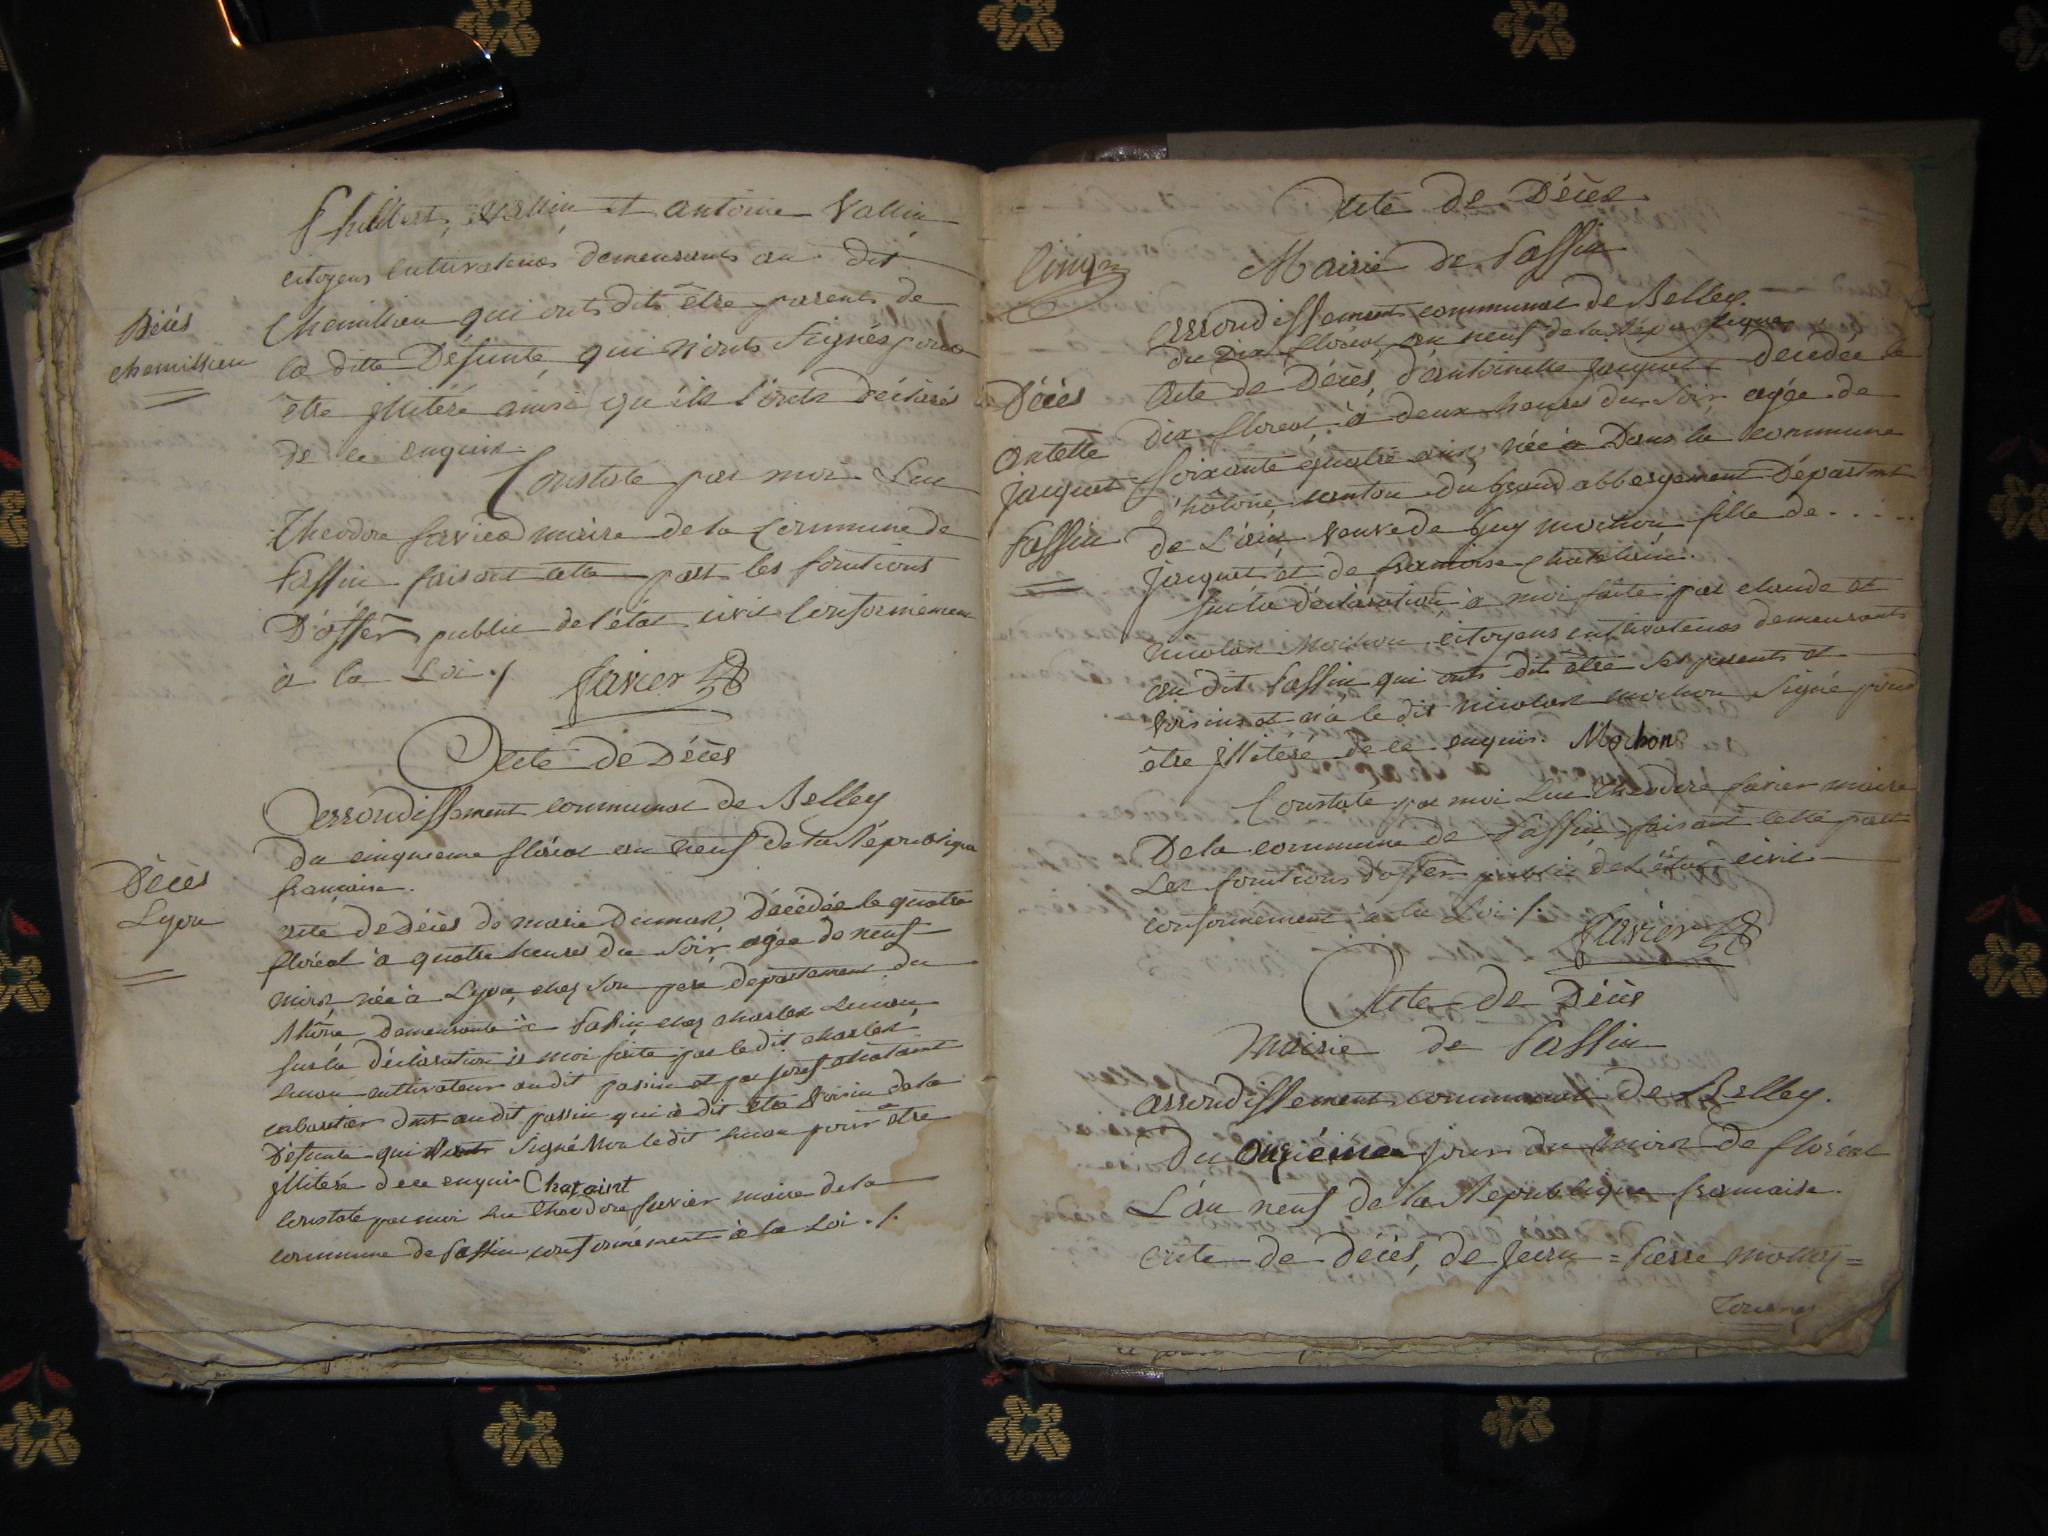 Philibert, Vallin et antoine Vallin
citoyens cultivateurs demeurants au dit
Décès
chemillieu
Chemillieu qui onts dits être parents de
la ditte Défunte, qui n'onts Signés pour
être jllitéré ainsi qu'ils l'onts déclarés
de ce enquis.
Constaté par moi Luc
Théodore favier maire de la Commune de
Passin faisant cette part les fonctions
D'offer public de l'état civil conformément
à la Loi ./.
favier
Acte de Décès
arrondissement communal de Belley
Décès
Lyon
Du cinquieme floréal an neuf de la République
francaise.
acte de Décès de marie Dumas décédée le quatre
floréal à quatre heures du Soir, agée de neuf
mois née à Lyon, chez Son pere département du
Rhône, demeurante à Passin chez charles
Sur la déclaration à moi faite par le dit charles
cultivateur au dit passin et par josef chataint
cabartier au dit passin qui à dit être Voisin de la
Défunte qui Signé Non le dit pour être
jllitéré de ce enquis Chataint
Constaté par moi Luc Théodore favier maire de la
commune de Passin conformément à la Loi ./.
Acte de Décès
Mairie de Passin
arrondissement communal de Belley.
du Dix floréal an neuf de la République
Décès
antette
jacquet
Passin
Acte de Décès, d'antoinette jacquet décédée le
dix floréal à deux heures du Soir agée de
Soixante quatre ans, née à Dans la commune
d'hotone, canton du grand abbergement Départmt
de L'ain Veuve de Guy mochon fille de . . . . .
jacquet et de francoise chatelain.
Sur la déclaration à moi faite par claude et
nicolas Mochon citoyens cultivateurs demeurants
au dit Passin qui onts dit être Ses parents et
Voisins et n'à le dit nicolas mochon Signé pour
être jllitéré de ce enquis. Mochon
Constaté par moi Luc Théodore favier maire
De la commune de Passin, faisant cette part
Les fonctions d'offer public de L'état civil
conformément à la Loi ./.
favier
Acte de Décès
Mairie de Passin
arrondissement communal de Belley.
Du onzième jour du mois de floréal
L'an neuf de la République francaise.
Acte de décès, de jean = Pierre